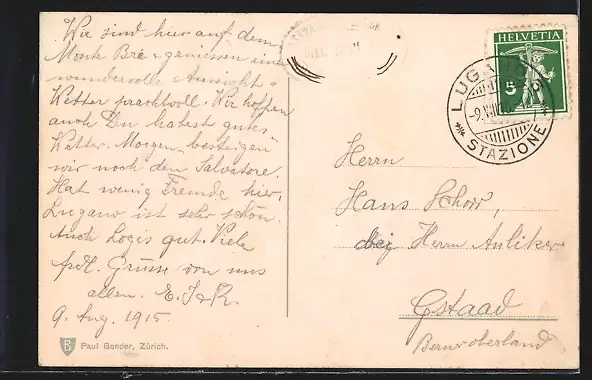 Wir sind hier auf dem
Monte Brè & geniessen eine
wundervolle Aussicht.
Wetter prachtvoll. Wir hoffen
auch Du habest gutes
Wetter. Morgen besteigen
wir noch den Salvatore.
Hat wenig Fremde hier.
Lugano ist sehr schön.
Auch Logis gut. Viele
frdl. Grüsse von uns
allen. E. J & R.
9. Aug. 1915
B Paul Bender, Zürich.
HELVETIA
5
LUGANO
-9.VIII
STAZIONE
Herrn
Hans Schorr,
bei Herrn Anliker
Gstaad
Berner oberland